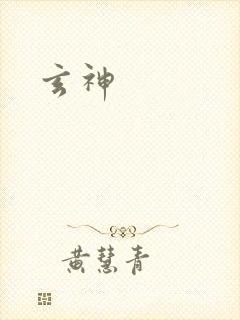 玄神
黄慧青